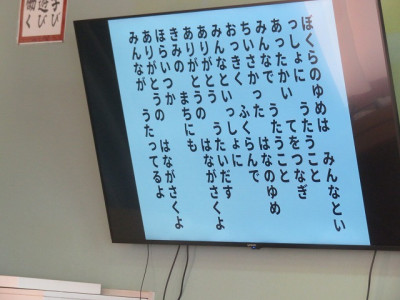 ぼくらのゆめは　みんなとい
っしょに　うたうこと
あったかい　てをつなぎ
みんなで　うたうこと
ちいさかった　はなのゆめ
おっきく　ふくらんで
みんなといっしょに
ありがとう　うたいだす
ありがとうの　はながさくよ
きみの　まちにも
ほらいつか　はながさくよ
ありがとうの
みんなが　うたってるよ
学び
遊び
働く